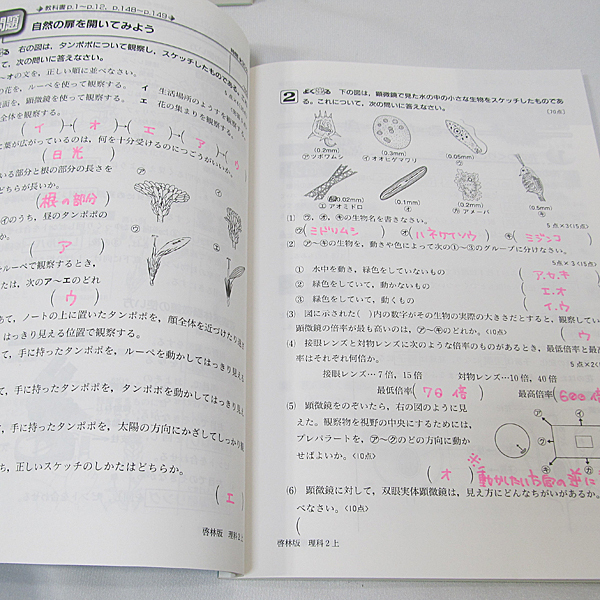 教科書 p.1〜p.12, p.148〜p.149
問題
自然の扉を開いてみよう
右の図は，タンポポについて観察し，スケッチしたものである。
て，次の問いに答えなさい。
〜オの文を，正しい順に並べなさい。
の花を，ルーペを使って観察する。 イ 生活場所のようすを観察する。
面を，顕微鏡を使って観察する。 エ 花の集まりを観察する。
全体を観察する。
( イ )→( オ )→( エ )→( ア )→( ウ
葉が広がっているのは，何を十分受けるのにつごうがいいか。
( 日光 )
いる部分と根の部分の長さを
どちらが長いか。
( 根の部分 )
㋑のうち，昼のタンポポの
か。
( ア )
ルーペで観察するとき，
たは，次のア〜エのどれ
( ウ )
あて，ノートの上に置いたタンポポを，顔全体を近づけたり遠ざ
はっきり見える位置で観察する。
て，手に持ったタンポポを，ルーペを動かしてはっきり見える
て，手に持ったタンポポを，タンポポを動かしてはっきり見え
て，手に持ったタンポポを，太陽の方向にかざしてしっかり観
ち，正しいスケッチのしかたはどちらか。
( エ )
啓林版 理科2上
2 よく出る 下の図は，顕微鏡で見た水の中の小さな生物をスケッチしたものであ
る。これについて，次の問いに答えなさい。
(0.3mm) (0.05mm)
㋐ツボワムシ ㋑オオヒゲマワリ ㋒
(0.02mm) (0.1mm) (0.2mm) (0.5mm)
㋓アオミドロ ㋔ ㋕アメーバ ㋖
(1) ㋒，㋔，㋖の生物名を書きなさい。
5点×3〈15点〉
㋒( ミドリムシ ) ㋔( ハネケイソウ ) ㋖( ミジンコ )
(2) ㋐〜㋖の生物を，動きや色によって次の①〜③のグループに分けなさい。
5点×3〈15点〉
① 水中を動き，緑色をしていないもの ( ア.カ.キ )
② 緑色をしていて，動かないもの ( エ.オ )
③ 緑色をしていて，動くもの ( イ.ウ )
(3) 図に示された( )内の数字がその生物の実際の大きさだとすると，観察してい
顕微鏡の倍率が最も高いのは，㋐〜㋖のどれか。〈10点〉 ( ウ
(4) 接眼レンズと対物レンズに次のような倍率のものがあるとき，最低倍率と最高
率はそれぞれ何倍か。
5点×2〈
接眼レンズ…7倍，15倍 対物レンズ…10倍，40倍
最低倍率( 70 倍 ) 最高倍率( 600 倍 )
(5) 顕微鏡をのぞいたら，右の図のように見
えた。観察物を視野の中央にするためには，
プレパラートを，㋐〜㋗のどの方向に動か
せばよいか。〈10点〉
( オ ) ※動かしたい方向の逆に
(6) 顕微鏡に対して，双眼実体顕微鏡は，見え方にどんなちがいがあるか。
べなさい。〈10点〉
(
啓林版 理科2上